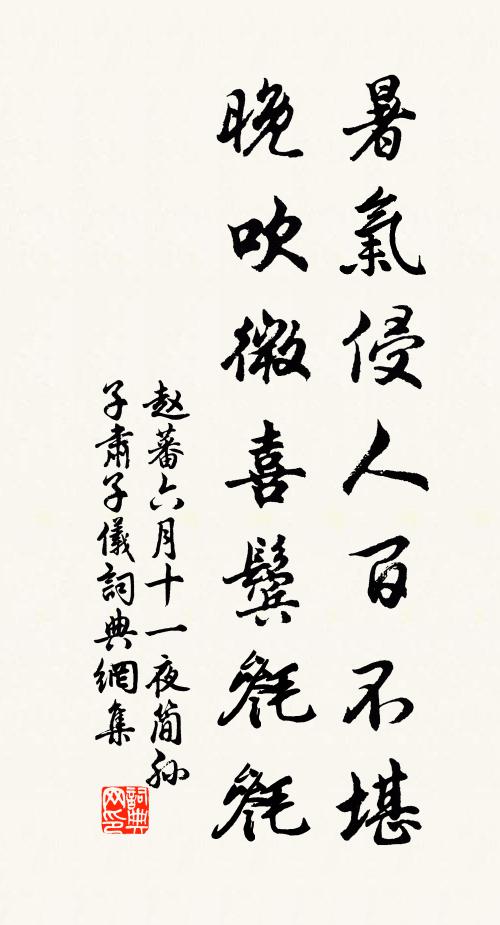 暑氣侵人百不堪
晚吹微喜鬢毿毿
赵蕃六月十一夜简孙
子肅子儀詞典網集
詞典
网印